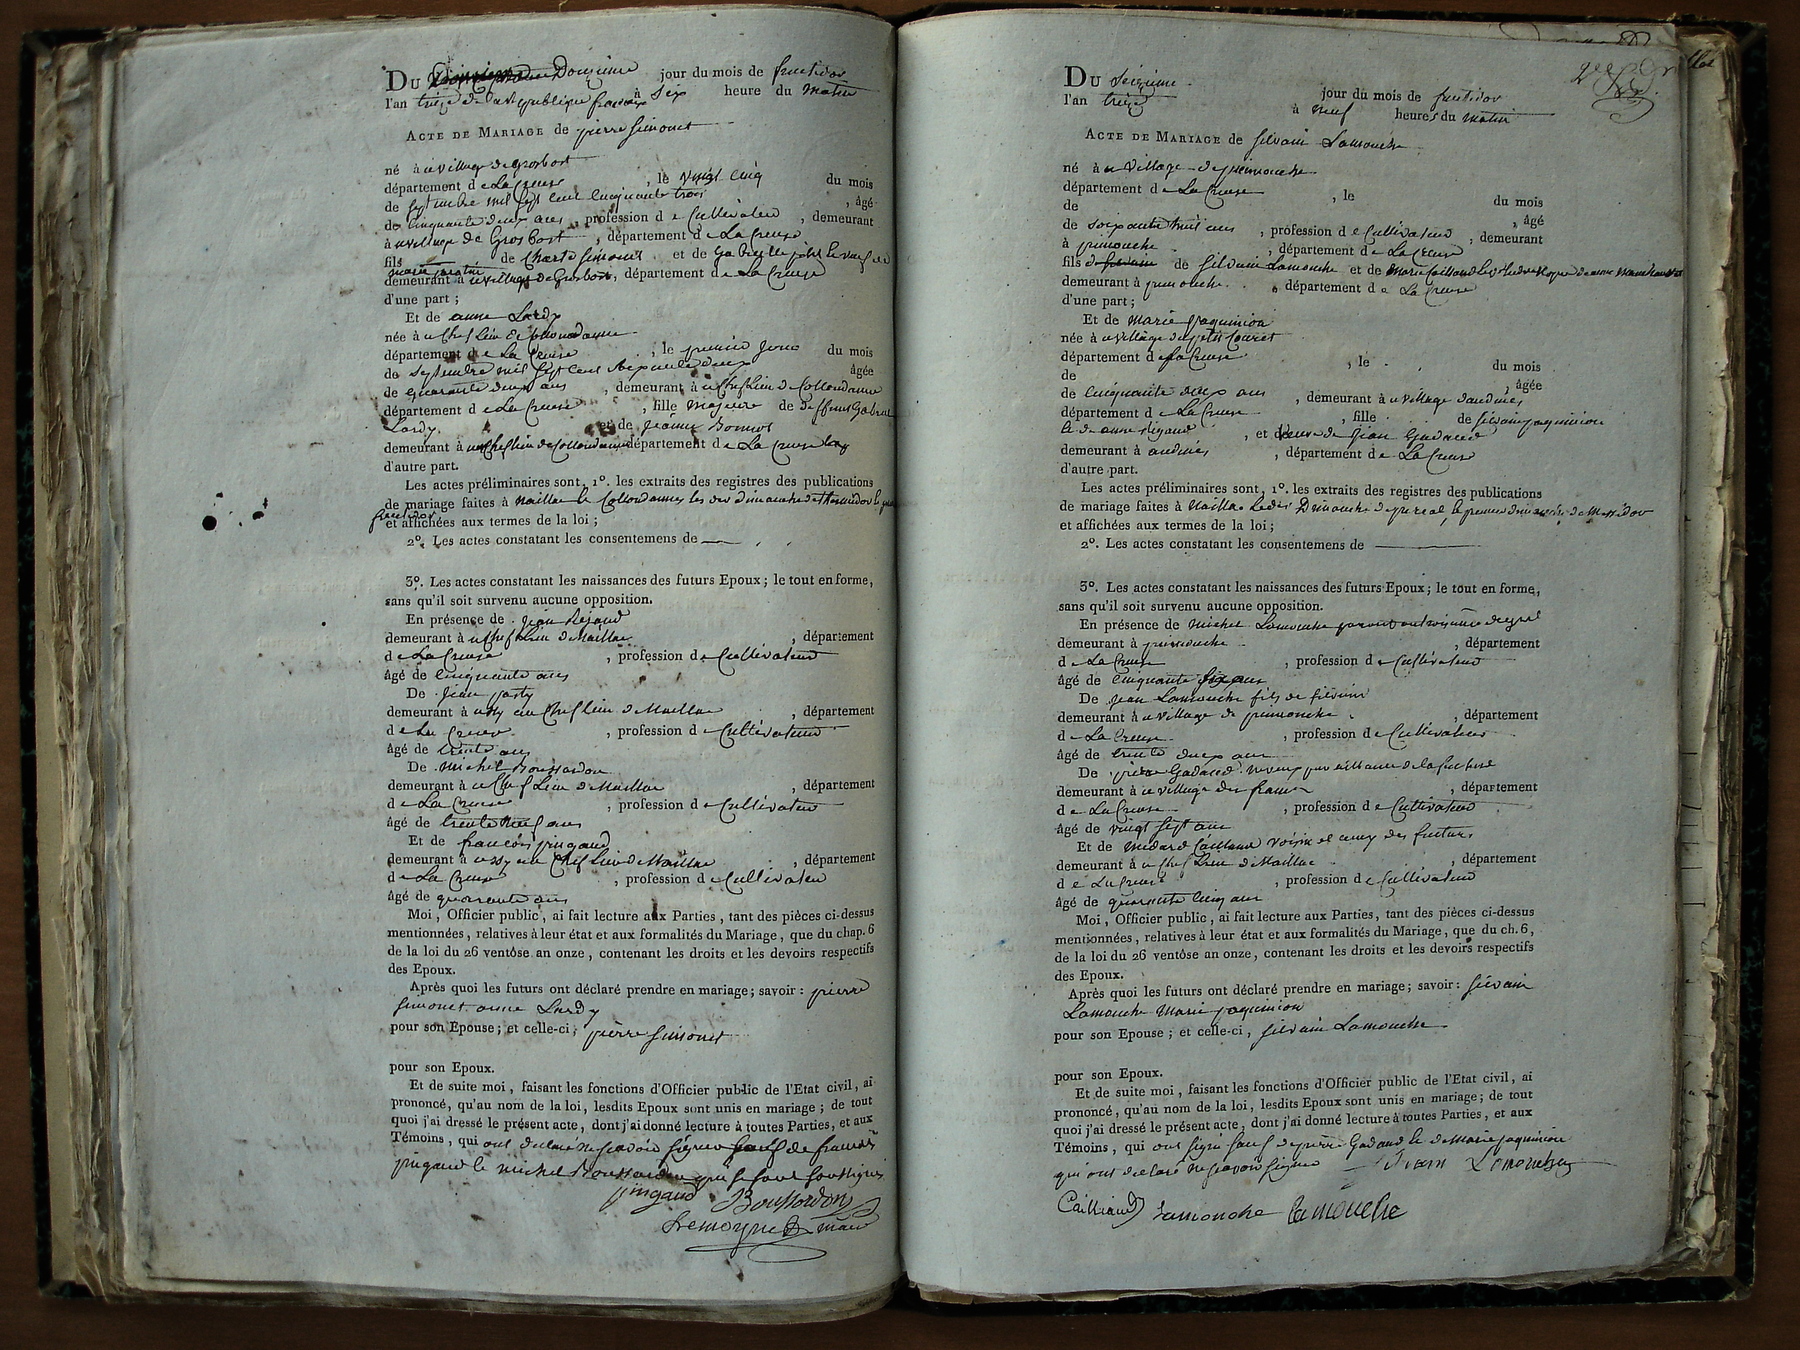 Du Douzieme jour du mois de fructidor
l'an treize de la republique francaise à Six heure du matin
Acte de Mariage de pierre Simonet
né à u village de Grosbost
département de La Creuse, le vingt Cinq du mois
de Septembre mil Sept cent Cinquante trois, âgé
de Cinquante deux ans, profession de Cultivateur, demeurant
à u village de Grosbost, département de La Creuse
fils de Charle Simonet et de
demeurant à u village de Grosbost, département de La Creuse
d'une part;
Et de anne Lardy
née à u Chef Lieu de Collondanne
département de La Creuse, le premier Jour du mois
de Septembre mil Sept cent Soixante deux âgée
de quarante deux ans, demeurant à u Chef Lieu de Collondanne
département de La Creuse, fille majeure de deffunt Gabriel
Lardy et de Jeanne Bonnot
demeurant à u Chef Lieu de Collondanne département de La Creuse
d'autre part.
Les actes préliminaires sont, 1°. les extraits des registres des publications
de mariage faites à Naillac & Collondannes les der dimanche de thermidor le
fructidor
et affichées aux termes de la loi;
2°. Les actes constatant les consentemens de
3°. Les actes constatant les naissances des futurs Epoux; le tout en forme,
sans qu'il soit survenu aucune opposition.
En présence de Jean
demeurant à u Chef Lieu de Naillac, département
de La Creuse, profession de Cultivateur
âgé de Cinquante ans
De Jean
demeurant à u Chef Lieu de Naillac, département
de La Creuse, profession de Cultivateur
âgé de trente ans
De Michel Boussardon
demeurant à u Chef Lieu de Naillac, département
de La Creuse, profession de Cultivateur
âgé de trente neuf ans
Et de françois pingaud
demeurant à u Chef Lieu de Naillac, département
de La Creuse, profession de Cultivateur
âgé de quarante ans
Moi, Officier public, ai fait lecture aux Parties, tant des pièces ci-dessus
mentionnées, relatives à leur état et aux formalités du Mariage, que du chap. 6
de la loi du 26 ventôse an onze, contenant les droits et les devoirs respectifs
des Epoux.
Après quoi les futurs ont déclaré prendre en mariage; savoir: pierre
Simonet anne Lardy
pour son Epouse; et celle-ci, pierre Simonet
pour son Epoux.
Et de suite moi, faisant les fonctions d'Officier public de l'Etat civil, ai
prononcé, qu'au nom de la loi, lesdits Epoux sont unis en mariage; de tout
quoi j'ai dressé le présent acte, dont j'ai donné lecture à toutes Parties, et aux
Témoins, qui ont declaré ne savoir Signer Sauf de francois
pingaud & michel Boussardon qui se sont soussignés
pingaud Boussardon
Lemoyne maire
Du Seizieme jour du mois de fructidor
l'an treize à neuf heures du matin
Acte de Mariage de Silvain Lamouche
né à u Village de primouche
département de La Creuse, le du mois
de, âgé
de Soixante huit ans, profession de Cultivateur, demeurant
à primouche, département de La Creuse
fils de Silvain Lamouche et de Marie
demeurant à primouche, département de La Creuse
d'une part;
Et de Marie Jaquinion
née à u Village du petit Couret
département de La Creuse, le du mois
de, âgée
de Cinquante deux ans, demeurant à u village daudines
département de La Creuse, fille de Silvain jaquinion
& de anne Rigaud, et Veuve de Jean Gadaud
demeurant à audines, département de La Creuse
d'autre part.
Les actes préliminaires sont, 1°. les extraits des registres des publications
de mariage faites à Naillac Le der Dimanche de prereal, le premier dimanche de Messidor
et affichées aux termes de la loi;
2°. Les actes constatant les consentemens de
3°. Les actes constatant les naissances des futurs Epoux; le tout en forme,
sans qu'il soit survenu aucune opposition.
En présence de Michel Lamouche parent au troisieme degré
demeurant à primouche, département
de La Creuse, profession de Cultivateur
âgé de Cinquante Six ans
De Jean Lamouche fils de Silvain
demeurant à u village de primouche, département
de La Creuse, profession de Cultivateur
âgé de trente deux ans
De pierre Gadaud neveux par alliance de la future
demeurant à u village des, département
de La Creuse, profession de Cultivateur
âgé de vingt Sept ans
Et de Medard Caillaud voisin et amy des futurs
demeurant à u Chef Lieu de Naillac, département
de La Creuse, profession de Cultivateur
âgé de quarante Cinq ans
Moi, Officier public, ai fait lecture aux Parties, tant des pièces ci-dessus
mentionnées, relatives à leur état et aux formalités du Mariage, que du ch. 6,
de la loi du 26 ventôse an onze, contenant les droits et les devoirs respectifs
des Epoux.
Après quoi les futurs ont déclaré prendre en mariage; savoir: Silvain
Lamouche Marie jaquinion
pour son Epouse; et celle-ci, Silvain Lamouche
pour son Epoux.
Et de suite moi, faisant les fonctions d'Officier public de l'Etat civil, ai
prononcé, qu'au nom de la loi, lesdits Epoux sont unis en mariage; de tout
quoi j'ai dressé le présent acte, dont j'ai donné lecture à toutes Parties, et aux
Témoins, qui ont signé Sauf de pierre Gadaud & de Marie jaquinion
qui ont declaré ne savoir signer
Cailliaud Lamouche Lamouche